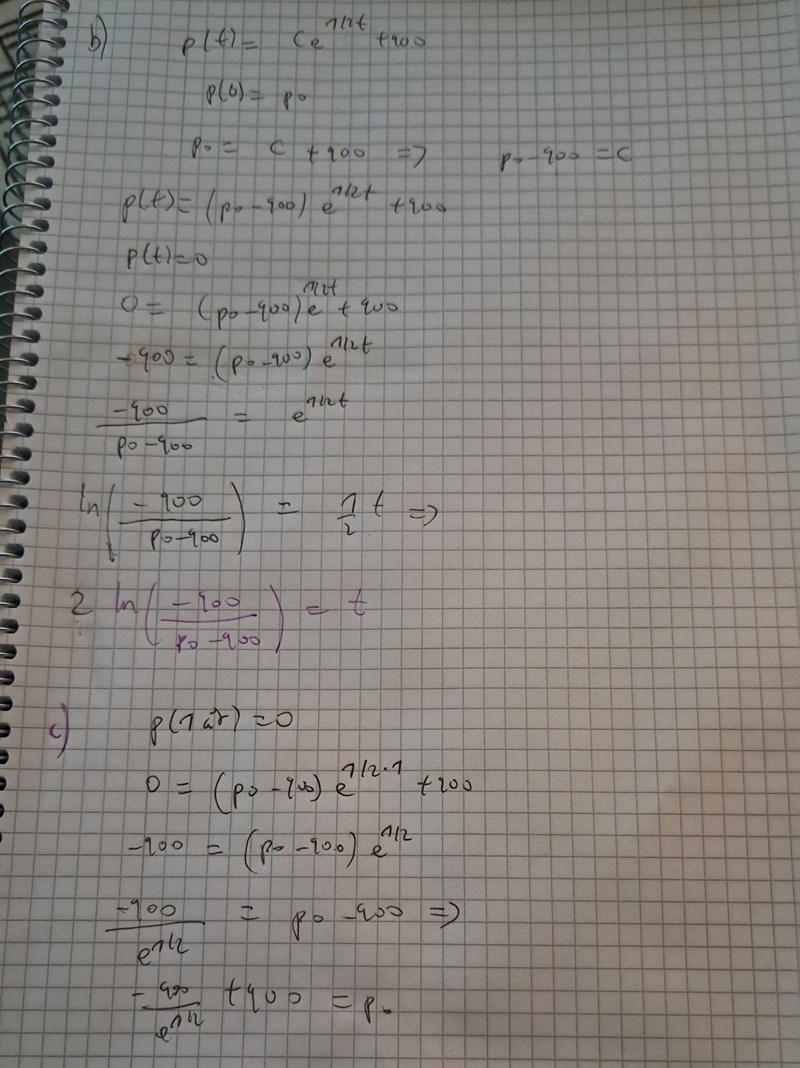 b) p(t) = Ce^{1/2t} + 900
p(0) = p₀
p₀ = C + 900 => p₀ - 900 = C
p(t) = (p₀ - 900) e^{1/2t} + 900
p(t) = 0
0 = (p₀ - 900) e^{1/2t} + 900
-900 = (p₀ - 900) e^{1/2t}
\frac{-900}{p₀ - 900} = e^{1/2t}
ln(\frac{-900}{p₀ - 900}) = \frac{1}{2} t =>
2 ln(\frac{-900}{p₀ - 900}) = t
c) p(1 år) = 0
0 = (p₀ - 900) e^{1/2·1} + 900
-900 = (p₀ - 900) e^{1/2}
\frac{-900}{e^{1/2}} = p₀ - 900 =>
-\frac{900}{e^{1/2}} + 900 = p₀